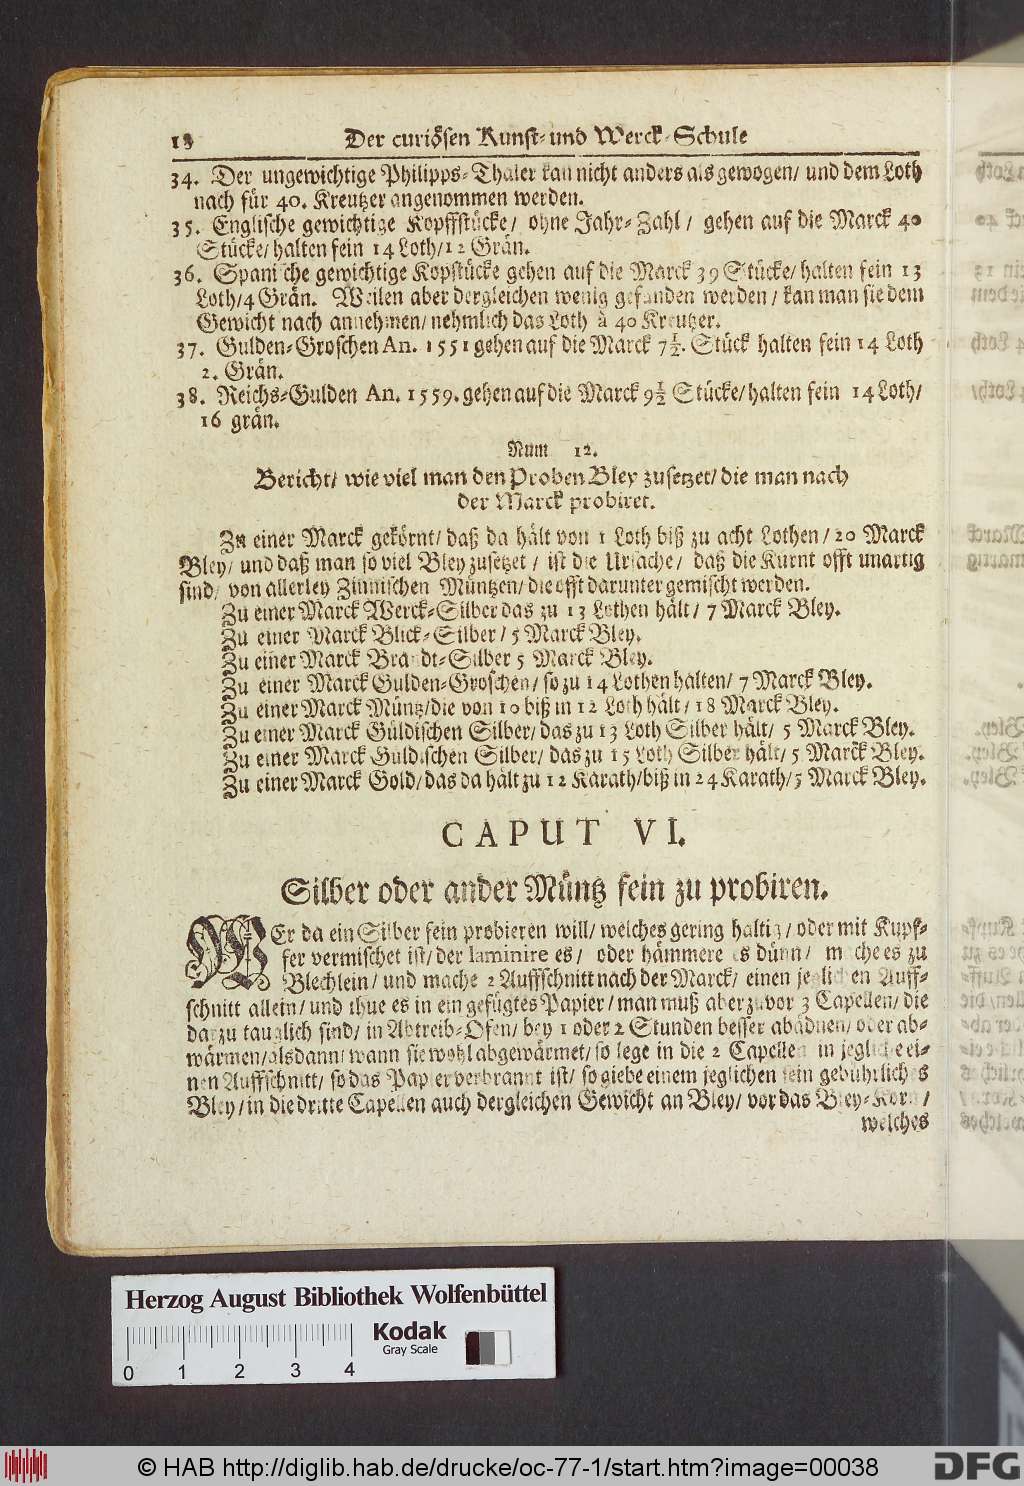 18 Der curiösen Kunst- und Werck-Schule
34. Der ungewichtige Philipps-Thaler kan nicht anders als gewogen/ und dem Loth
nach für 40. Kreutzer angenommen werden.
35. Englische gewichtige Kopffstücke/ ohne Jahr-Zahl/ gehen auf die Marck 40
Stücke/ halten fein 14 Loth/ 12 Grän.
36. Spanische gewichtige Kopfstücke gehen auf die Marck 39 Stücke/ halten fein 13
Loth/ 4 Grän. Weilen aber dergleichen wenig gefunden werden/ kan man sie dem
Gewicht nach annehmen/ nehmlich das Loth à 40 Kreutzer.
37. Gulden-Groschen An. 1551 gehen auf die Marck 7½. Stück halten fein 14 Loth
2. Grän.
38. Reichs-Gulden An. 1559. gehen auf die Marck 9½ Stücke/ halten fein 14 Loth/
16 grän.
Num 12.
Bericht/ wie viel man den Proben Bley zusetzet/ die man nach
der Marck probiret.
Zu einer Marck gekörnt/ daß da hält von 1 Loth biß zu acht Lothen/ 20 Marck
Bley/ und daß man so viel Bley zusetzet/ ist die Ursache/ daß die Kurnt offt unartig
sind/ von allerley Zinnischen Müntzen/ die offt darunter gemischt werden.
Zu einer Marck Werck-Silber das zu 13 Lothen hält/ 7 Marck Bley.
Zu einer Marck Blick-Silber/ 5 Marck Bley.
Zu einer Marck Brandt-Silber 5 Marck Bley.
Zu einer Marck Gulden-Groschen/ so zu 14 Lothen halten/ 7 Marck Bley.
Zu einer Marck Müntz/ die von 10 biß in 12 Loth hält/ 18 Marck Bley.
Zu einer Marck Güldischen Silber/ das zu 13 Loth Silber hält/ 5 Marck Bley.
Zu einer Marck Güldischen Silber/ das zu 15 Loth Silber hält/ 5 Marck Bley.
Zu einer Marck Gold/ das da hält zu 12 Karath/ biß in 24 Karath/ 5 Marck Bley.
CAPUT VI.
Silber oder ander Müntz fein zu probiren.
WEr da ein Silber fein probieren will/ welches gering haltig/ oder mit Kupf-
fer vermischet ist/ der laminire es/ oder hämmere es dünn/ mache es zu
Blechlein/ und mache 2 Auffschnitt nach der Marck/ einen jeglichen Auff-
schnitt allein/ und thue es in ein gefügtes Papier/ man muß aber zuvor 3 Capellen/ die
darzu tauglich sind/ in Abtreib-Ofen/ bey 1 oder 2 Stunden besser abädnen/ oder ab-
wärmen/ alsdann/ wann sie wohl abgewärmet/ so lege in die 2 Capellen in jegliche ei-
nen Auffschnitt/ so das Papier verbrannt ist/ so giebe einem jeglichen sein gebührliches
Bley/ in die dritte Capellen auch dergleichen Gewicht an Bley/ vor das Bley-Korn/
welches
Herzog August Bibliothek Wolfenbüttel
Kodak
Gray Scale
0 1 2 3 4
© HAB http://diglib.hab.de/drucke/oc-77-1/start.htm?image=00038
DFG